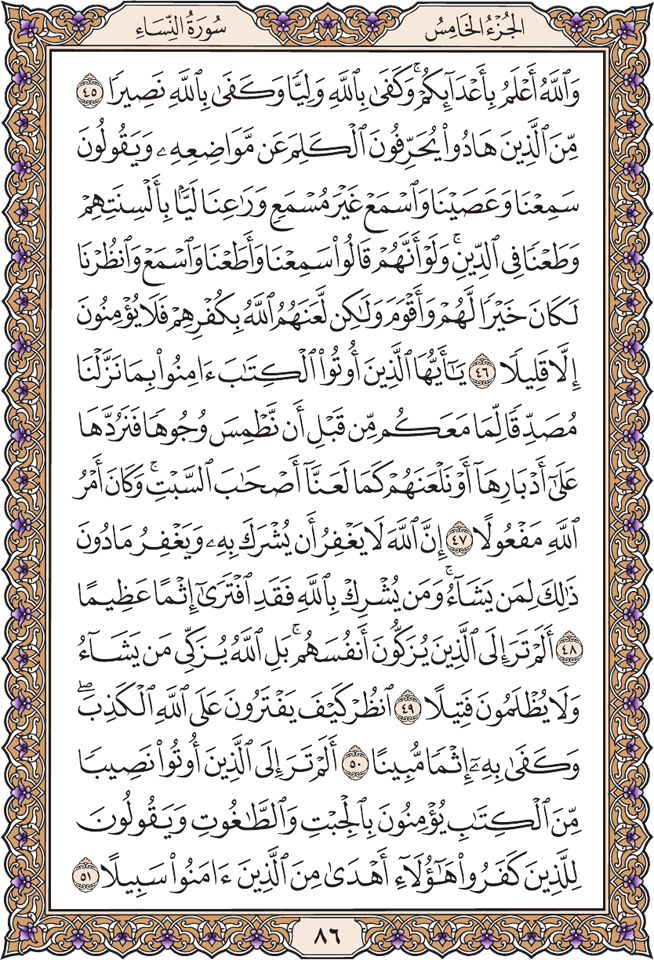 الجُزْءُ الخَامِسُ
سُورَةُ النِّسَاءِ
وَٱللَّهُ أَعۡلَمُ بِأَعۡدَآئِكُمۡۚ وَكَفَىٰ بِٱللَّهِ وَلِيّٗا وَكَفَىٰ بِٱللَّهِ نَصِيرٗا ٤٥
مِّنَ ٱلَّذِينَ هَادُواْ يُحَرِّفُونَ ٱلۡكَلِمَ عَن مَّوَاضِعِهِۦ وَيَقُولُونَ
سَمِعۡنَا وَعَصَيۡنَا وَٱسۡمَعۡ غَيۡرَ مُسۡمَعٖ وَرَٰعِنَا لَيَّۢا بِأَلۡسِنَتِهِمۡ
وَطَعۡنٗا فِي ٱلدِّينِۚ وَلَوۡ أَنَّهُمۡ قَالُواْ سَمِعۡنَا وَأَطَعۡنَا وَٱسۡمَعۡ وَٱنظُرۡنَا
لَكَانَ خَيۡرٗا لَّهُمۡ وَأَقۡوَمَ وَلَٰكِن لَّعَنَهُمُ ٱللَّهُ بِكُفۡرِهِمۡ فَلَا يُؤۡمِنُونَ
إِلَّا قَلِيلٗا ٤٦ يَٰٓأَيُّهَا ٱلَّذِينَ أُوتُواْ ٱلۡكِتَٰبَ ءَامِنُواْ بِمَا نَزَّلۡنَا
مُصَدِّقٗا لِّمَا مَعَكُم مِّن قَبۡلِ أَن نَّطۡمِسَ وُجُوهٗا فَنَرُدَّهَا
عَلَىٰٓ أَدۡبَارِهَآ أَوۡ نَلۡعَنَهُمۡ كَمَا لَعَنَّآ أَصۡحَٰبَ ٱلسَّبۡتِۚ وَكَانَ أَمۡرُ
ٱللَّهِ مَفۡعُولًا ٤٧ إِنَّ ٱللَّهَ لَا يَغۡفِرُ أَن يُشۡرَكَ بِهِۦ وَيَغۡفِرُ مَا دُونَ
ذَٰلِكَ لِمَن يَشَآءُۚ وَمَن يُشۡرِكۡ بِٱللَّهِ فَقَدِ ٱفۡتَرَىٰٓ إِثۡمًا عَظِيمًا
٤٨ أَلَمۡ تَرَ إِلَى ٱلَّذِينَ يُزَكُّونَ أَنفُسَهُمۚ بَلِ ٱللَّهُ يُزَكِّي مَن يَشَآءُ
وَلَا يُظۡلَمُونَ فَتِيلًا ٤٩ ٱنظُرۡ كَيۡفَ يَفۡتَرُونَ عَلَى ٱللَّهِ ٱلۡكَذِبَۖ
وَكَفَىٰ بِهِۦٓ إِثۡمٗا مُّبِينًا ٥٠ أَلَمۡ تَرَ إِلَى ٱلَّذِينَ أُوتُواْ نَصِيبٗا
مِّنَ ٱلۡكِتَٰبِ يُؤۡمِنُونَ بِٱلۡجِبۡتِ وَٱلطَّٰغُوتِ وَيَقُولُونَ
لِلَّذِينَ كَفَرُواْ هَٰٓؤُلَآءِ أَهۡدَىٰ مِنَ ٱلَّذِينَ ءَامَنُواْ سَبِيلًا ٥١
٨٦